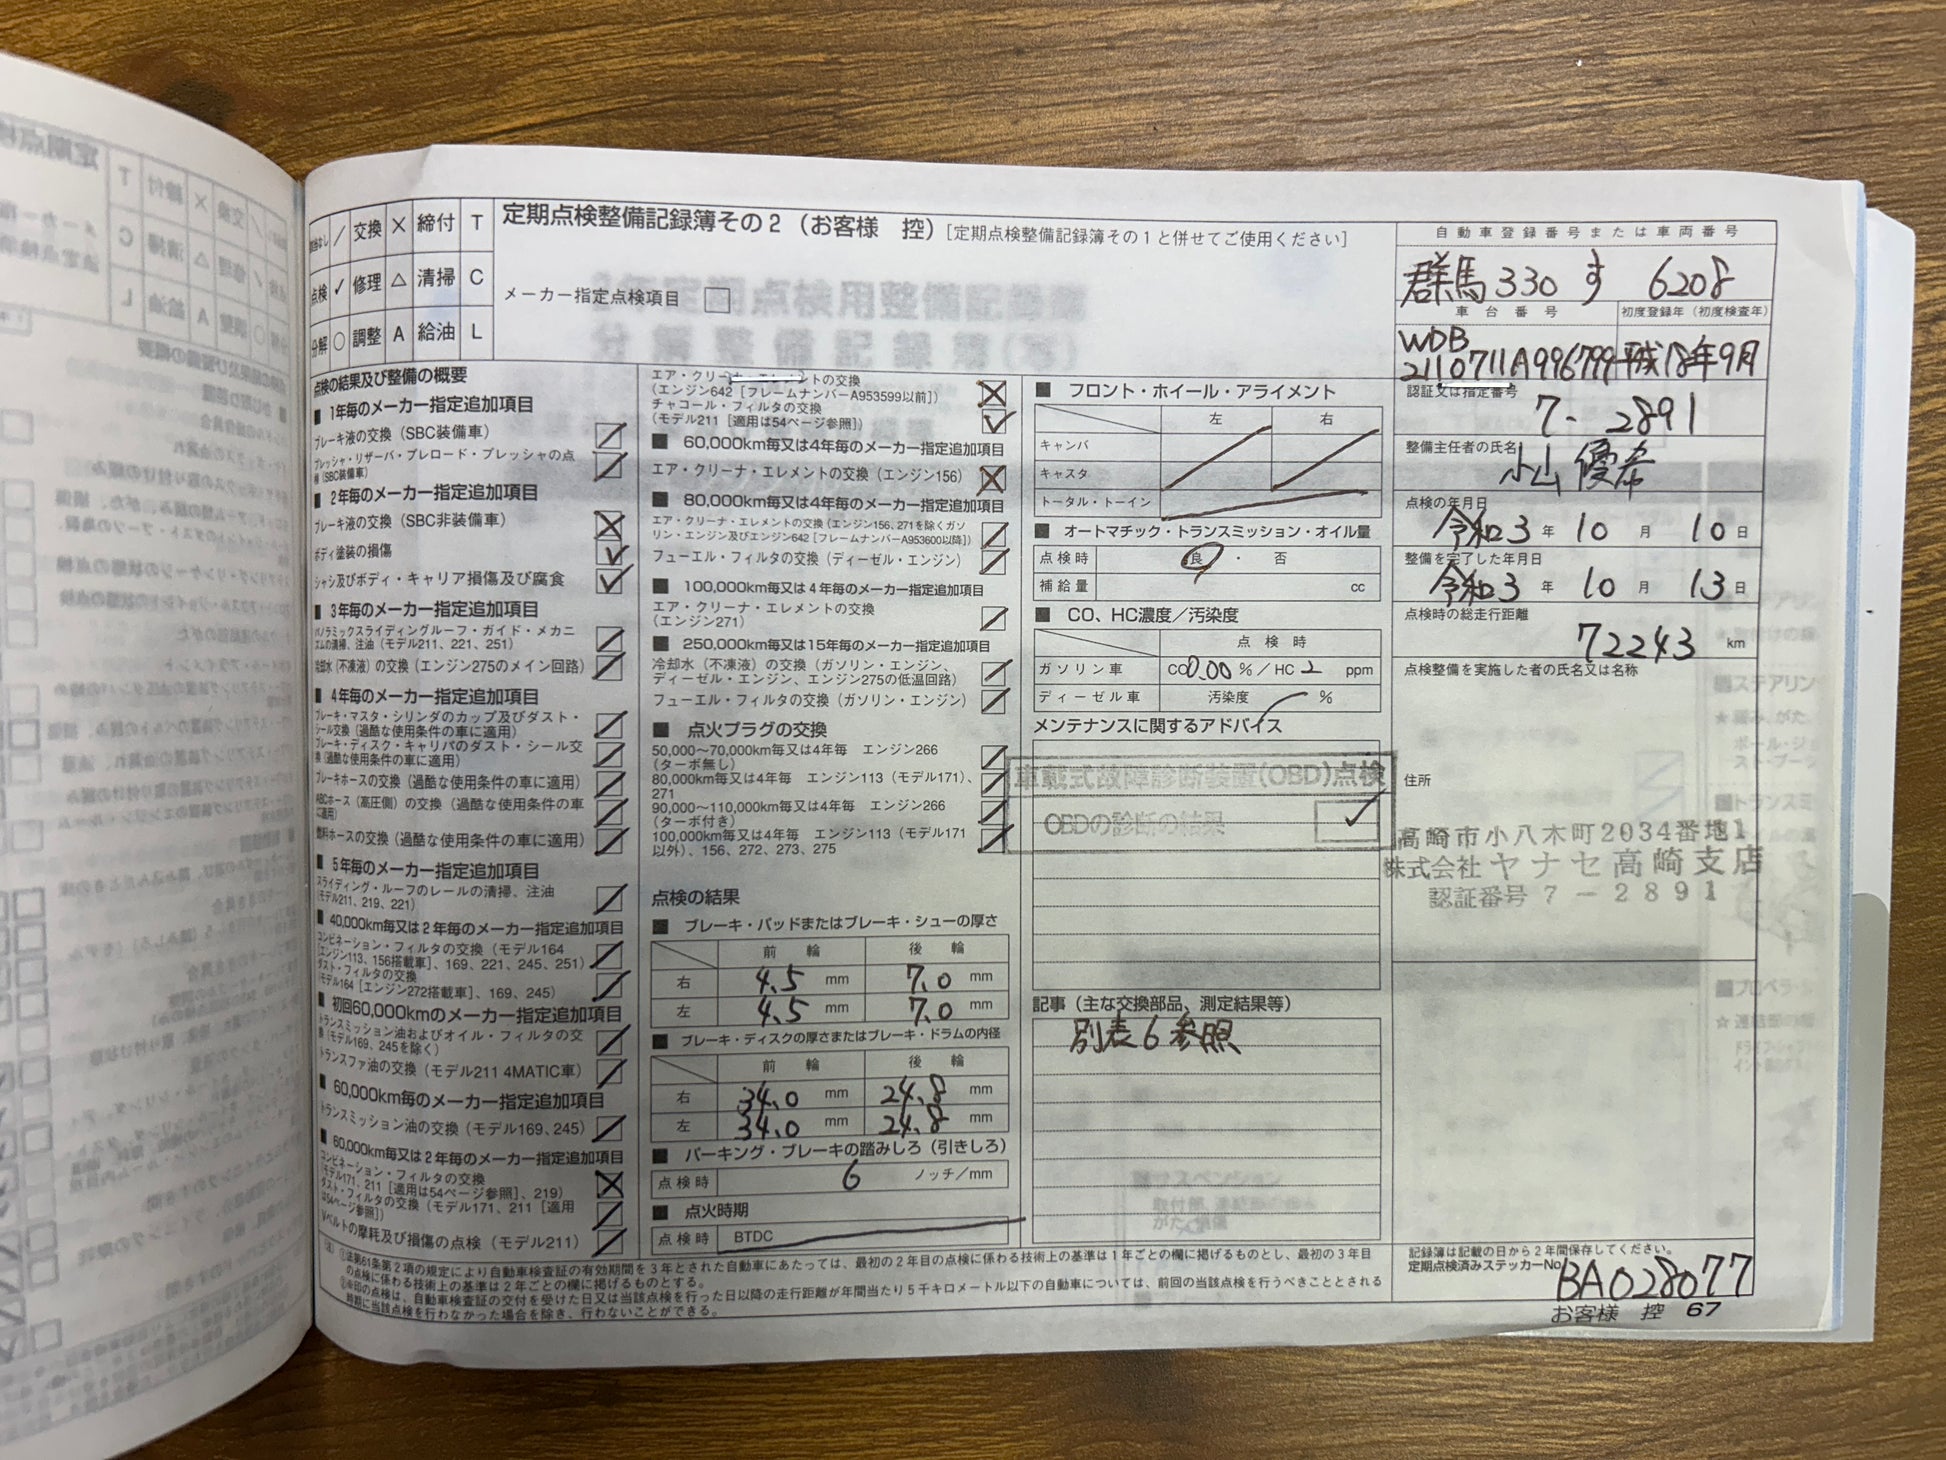 定期点検整備記録簿その2（お客様　控）[定期点検整備記録簿その1と併せてご使用ください]
メーカー指定点検項目 □
／ 交換 × 締付 T
点検 ✓ 修理 △ 清掃 C
分解 ○ 調整 A 給油 L
点検の結果及び整備の概要
■ 1年毎のメーカー指定追加項目
ブレーキ液の交換（SBC装備車）
プレッシャ・リザーバ・プレロード・プレッシャの点
検（SBC装備車）
■ 2年毎のメーカー指定追加項目
ブレーキ液の交換（SBC非装備車）
ボディ塗装の損傷
シャシ及びボディ・キャリア損傷及び腐食
■ 3年毎のメーカー指定追加項目
パノラミックスライディングルーフ・ガイド・メカニ
ズムの清掃、注油（モデル211、221、251）
冷却水（不凍液）の交換（エンジン275のメイン回路）
■ 4年毎のメーカー指定追加項目
ブレーキ・マスタ・シリンダのカップ及びダスト・
シール交換（過酷な使用条件の車に適用）
ブレーキ・ディスク・キャリパのダスト・シール交
換（過酷な使用条件の車に適用）
ブレーキホースの交換（過酷な使用条件の車に適用）
ABCホース（高圧側）の交換（過酷な使用条件の車
に適用）
燃料ホースの交換（過酷な使用条件の車に適用）
■ 5年毎のメーカー指定追加項目
スライディング・ルーフのレールの清掃、注油
（モデル211、219、221）
■ 40,000km毎又は2年毎のメーカー指定追加項目
コンビネーション・フィルタの交換（モデル164
［エンジン113、156搭載車］、169、221、245、251）
ダスト・フィルタの交換
（モデル164［エンジン272搭載車］、169、245）
■ 初回60,000kmのメーカー指定追加項目
トランスミッション油およびオイル・フィルタの交
換（モデル169、245を除く）
トランスファ油の交換（モデル211 4MATIC車）
■ 60,000km毎のメーカー指定追加項目
トランスミッション油の交換（モデル169、245）
■ 60,000km毎又は2年毎のメーカー指定追加項目
コンビネーション・フィルタの交換
（モデル171、211［適用は54ページ参照］、219）
ダスト・フィルタの交換（モデル171、211［適用
は54ページ参照］）
Vベルトの摩耗及び損傷の点検（モデル211）
エア・クリーナ・エレメントの交換
（エンジン642［フレームナンバーA953599以前］）
チャコール・フィルタの交換
（モデル211［適用は54ページ参照］）
■ 60,000km毎又は4年毎のメーカー指定追加項目
エア・クリーナ・エレメントの交換（エンジン156）
■ 80,000km毎又は4年毎のメーカー指定追加項目
エア・クリーナ・エレメントの交換（エンジン156、271を除くガソ
リン・エンジン及びエンジン642［フレームナンバーA953600以降］）
フューエル・フィルタの交換（ディーゼル・エンジン）
■ 100,000km毎又は4年毎のメーカー指定追加項目
エア・クリーナ・エレメントの交換
（エンジン271）
■ 250,000km毎又は15年毎のメーカー指定追加項目
冷却水（不凍液）の交換（ガソリン・エンジン、
ディーゼル・エンジン、エンジン275の低温回路）
フューエル・フィルタの交換（ガソリン・エンジン）
■ 点火プラグの交換
50,000～70,000km毎又は4年毎　エンジン266
（ターボ無し）
80,000km毎又は4年毎　エンジン113（モデル171）、
271
90,000～110,000km毎又は4年毎　エンジン266
（ターボ付き）
100,000km毎又は4年毎　エンジン113（モデル171
以外）、156、272、273、275
点検の結果
■ ブレーキ・パッドまたはブレーキ・シューの厚さ
前　輪　後　輪
右 4.5 mm 7.0 mm
左 4.5 mm 7.0 mm
■ ブレーキ・ディスクの厚さまたはブレーキ・ドラムの内径
前　輪　後　輪
右 34.0 mm 24.8 mm
左 34.0 mm 24.8 mm
■ パーキング・ブレーキの踏みしろ（引きしろ）
点検時 6 ノッチ／mm
■ 点火時期
点検時 BTDC
■ フロント・ホイール・アライメント
左　右
キャンバ
キャスタ
トータル・トーイン
■ オートマチック・トランスミッション・オイル量
点検時 良 ・ 否
補給量 cc
■ CO、HC濃度／汚染度
点 検 時
ガソリン車 CO 0.00 % ／ HC 2 ppm
ディーゼル車 汚染度 %
メンテナンスに関するアドバイス
車載式故障診断装置(OBD)点検
OBDの診断の結果 ✓
記事（主な交換部品、測定結果等）
別表6参照
自動車登録番号または車両番号
群馬 330 す 6208
車台番号　初度登録年（初度検査年）
WDB
2110711A996799 平成18年9月
認証又は指定番号
7-2891
整備主任者の氏名
小山 優希
点検の年月日
令和3 年 10 月 10 日
整備を完了した年月日
令和3 年 10 月 13 日
点検時の総走行距離
72243 km
点検整備を実施した者の氏名又は名称
住所
高崎市小八木町2034番地1
株式会社ヤナセ高崎支店
認証番号7－2891
記録簿は記載の日から2年間保存してください。
定期点検済みステッカーNo.
BA028077
（注）①法第61条第2項の規定により自動車検査証の有効期間を3年とされた自動車にあたっては、最初の2年目の点検に係わる技術上の基準は1年ごとの欄に掲げるものとし、最初の3年目
の点検に係わる技術上の基準は2年ごとの欄に掲げるものとする。
②※印の点検は、自動車検査証の交付を受けた日又は当該点検を行った日以降の走行距離が年間当たり5千キロメートル以下の自動車については、前回の当該点検を行うべきこととされる
時期に当該点検を行わなかった場合を除き、行わないことができる。
お客様　控　67